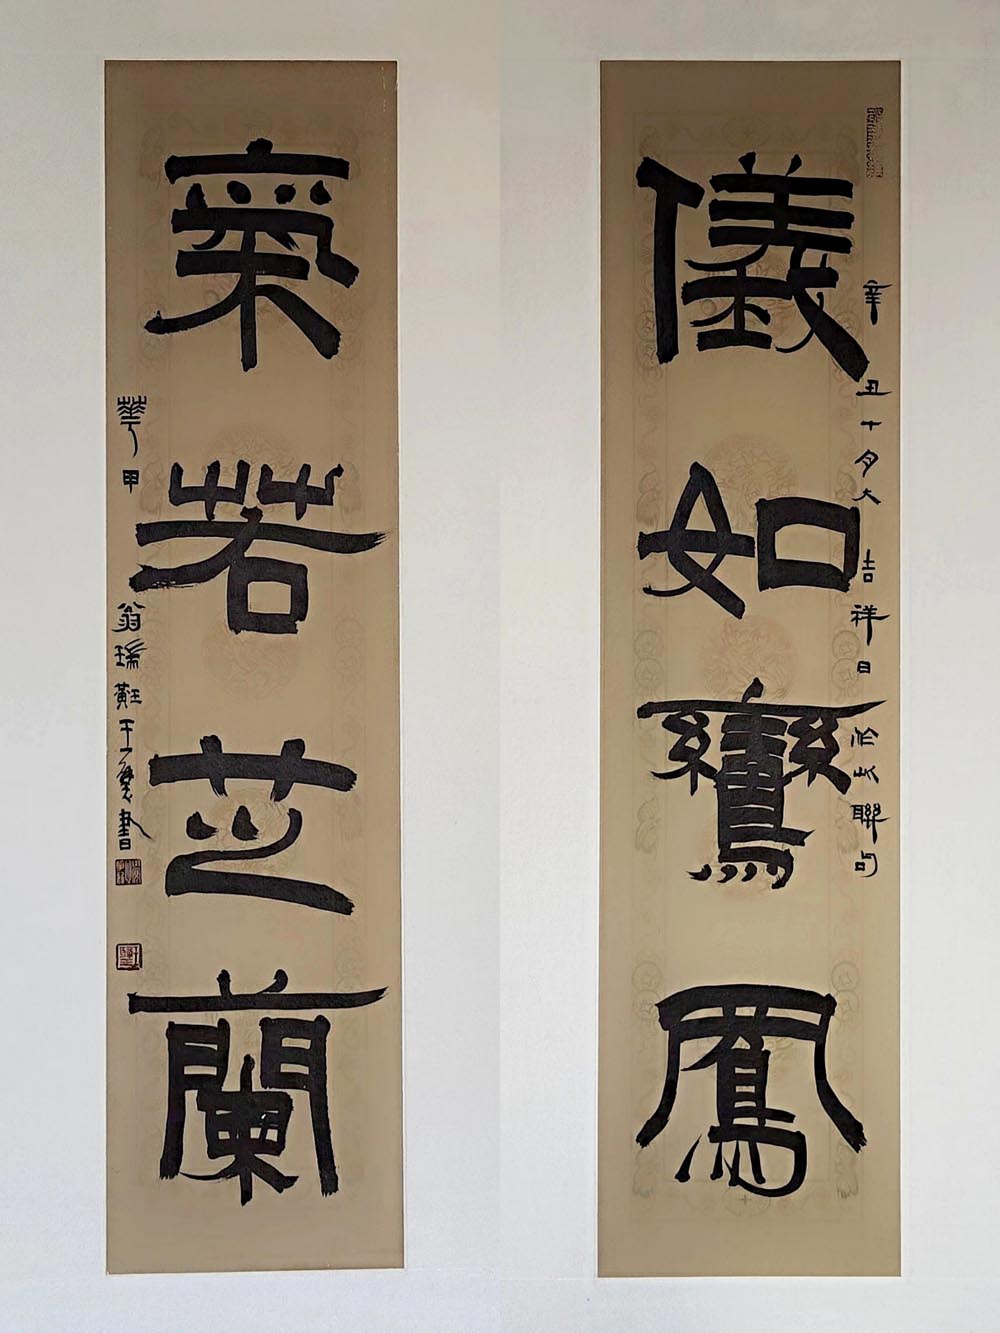 儀如鸞鳳
辛丑十月大吉祥日作此聯句
氣若芝蘭
華甲翁瑞
書